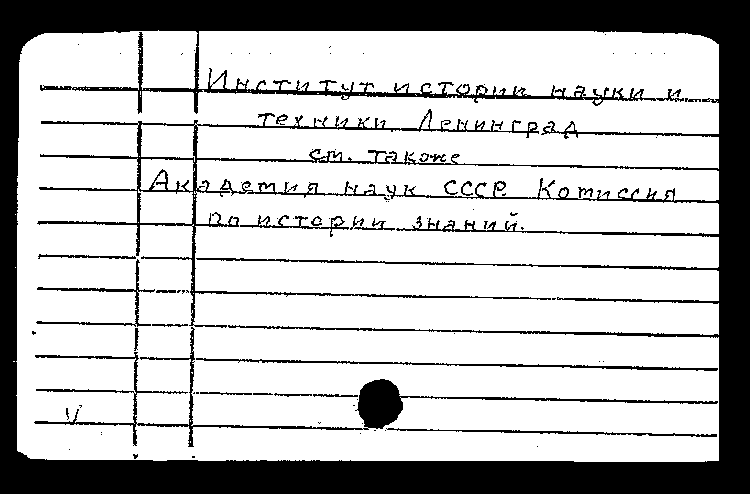 Институт истории науки и
техники. Ленинград
см. также
Академия наук СССР. Комиссия
по истории знаний.
V